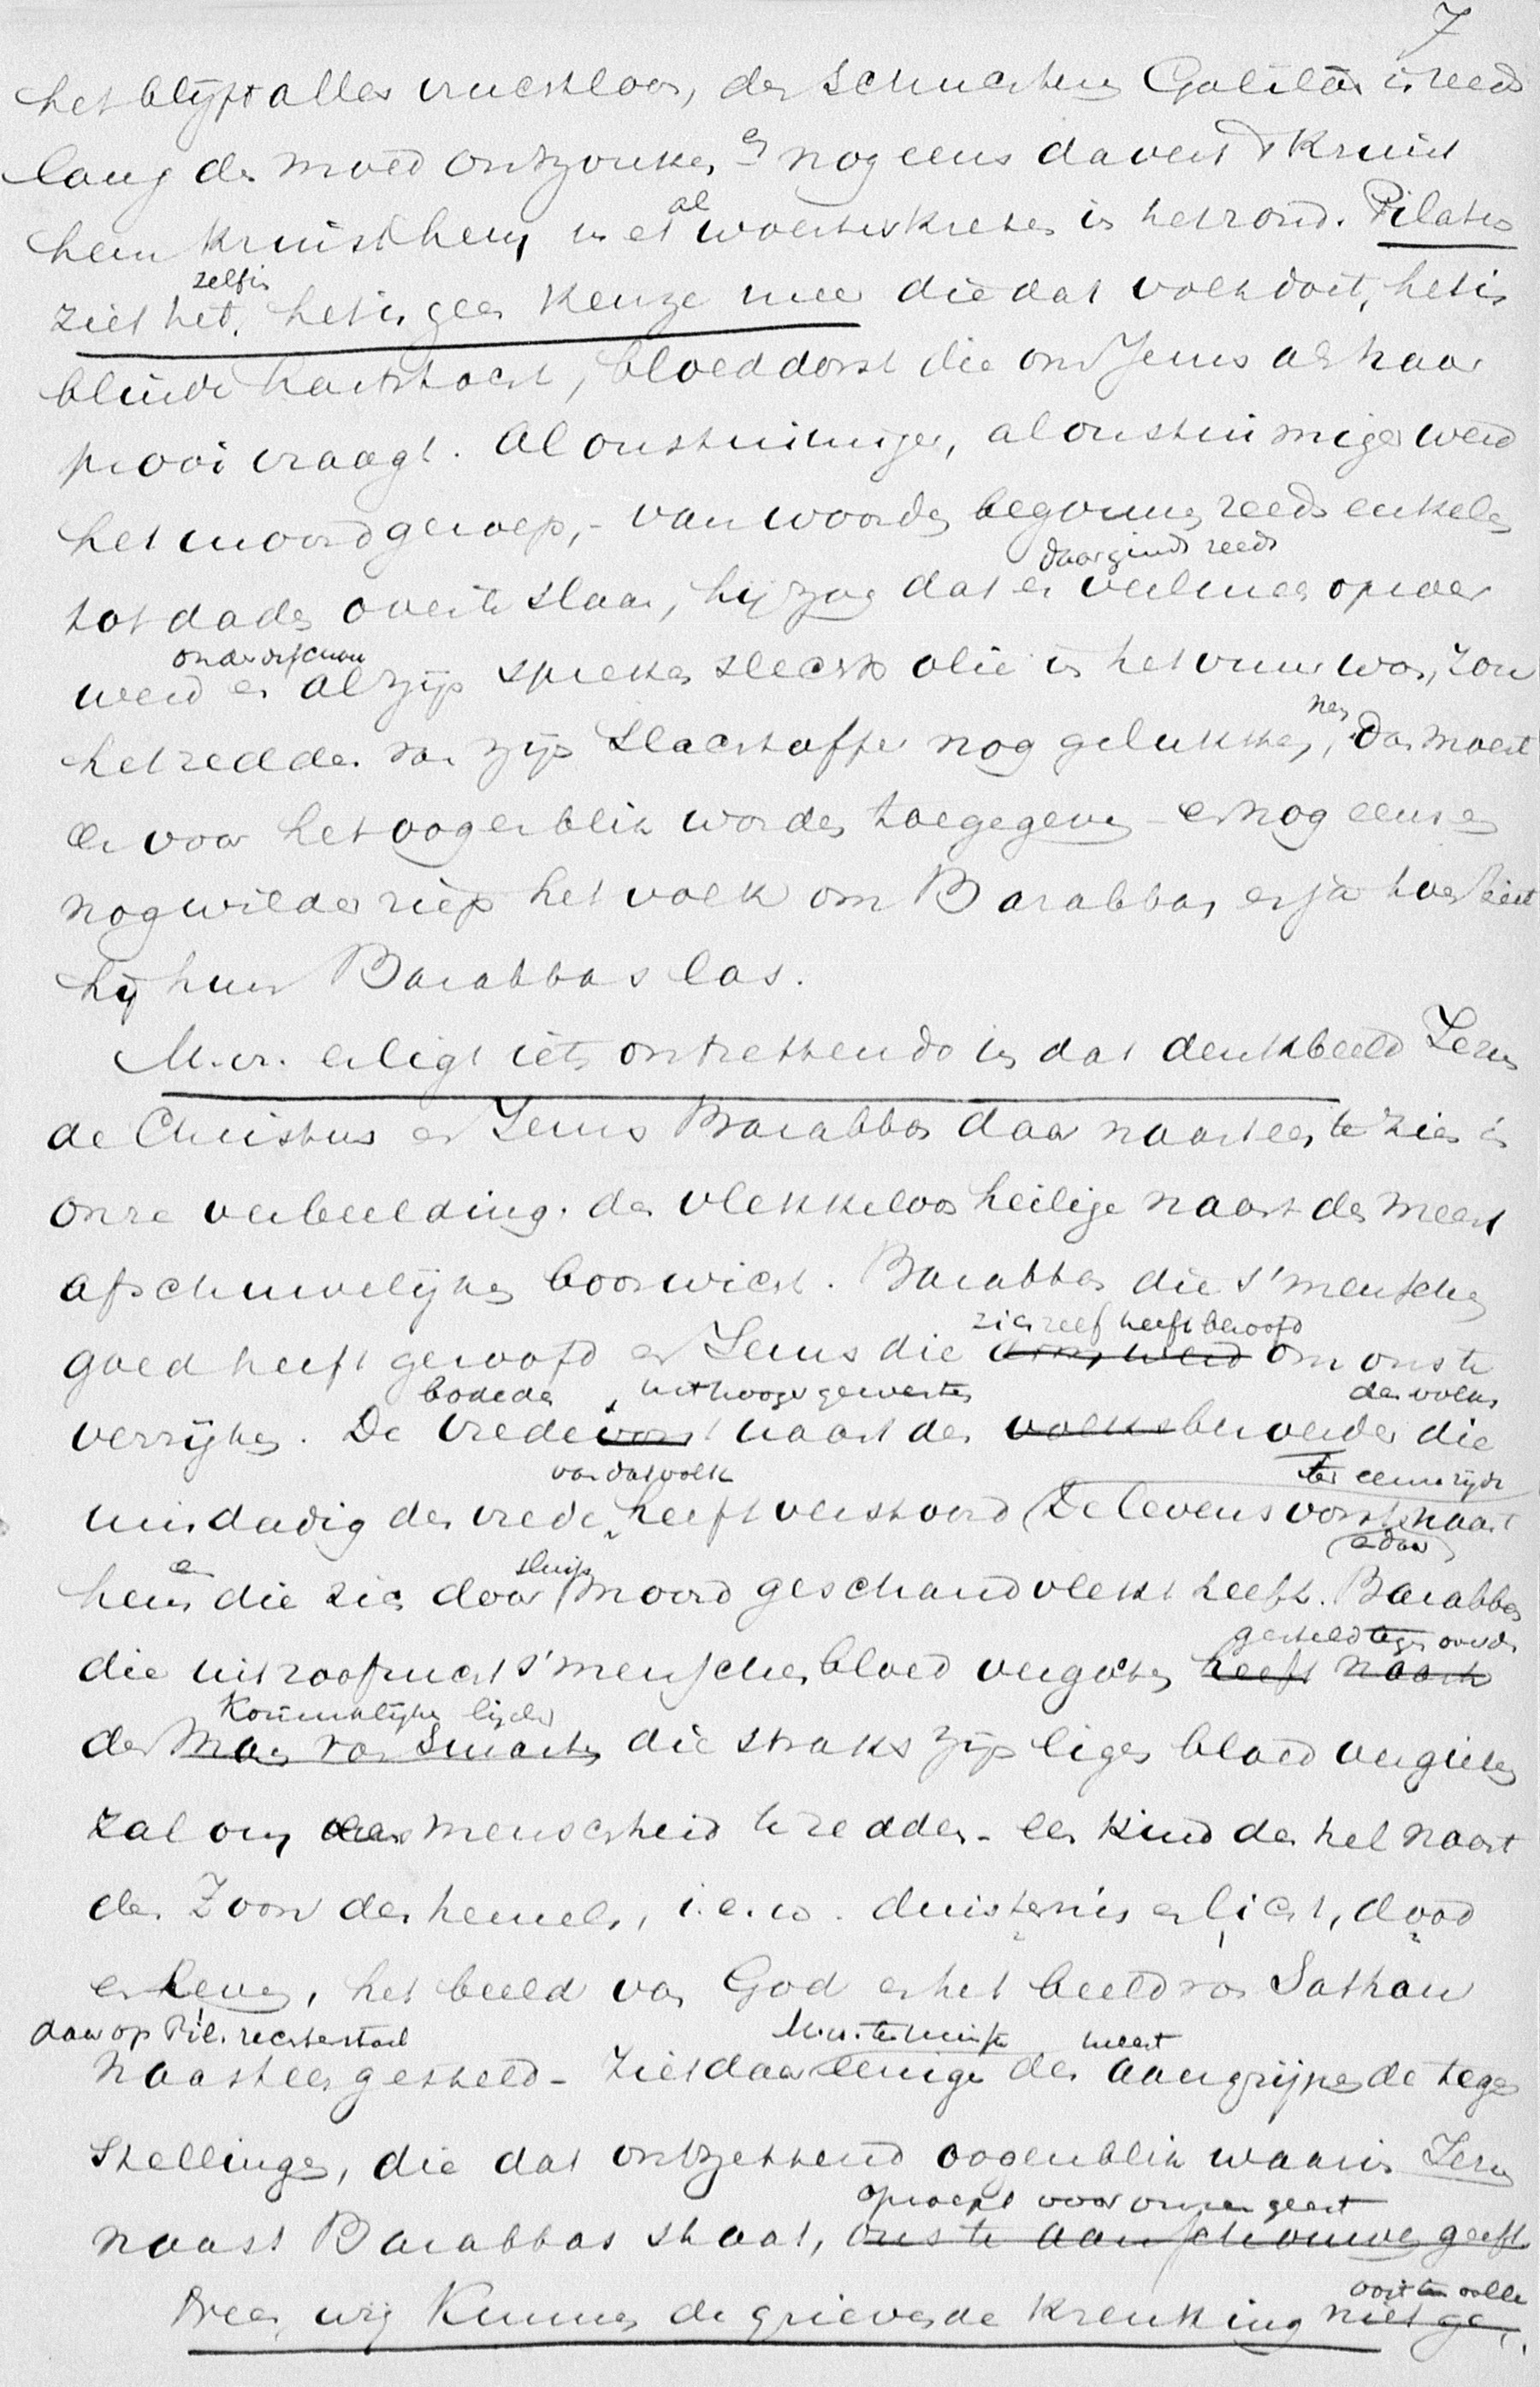 7
het blijft alles vruchteloos, den schuchteren Galileër is reeds
lang de moed ontzonken en nog eens davert 't Kruist
hem kruist hem, met al woester kreten in het rond. Pilatus
zelfs
ziet het, het is geen keuze meer die dat volk doet, het is
blinde hartstocht, bloeddorst die om Jezus als haar
prooi vraagt. Al onstuimiger, al onstuimiger werd
het moordgeroep, - van woorden begonnen reeds enkelen
daarginds reeds
tot daden over te slaan, hij zag dat er veelmeer oproer
werd en al zijn spreken slechts olie in het vuur was, zou
het redden van zijn slachtoffer nog gelukken, neen, dan moest
er voor het oogenblik worden toegegeven - en nog eens en
nog wilder riep het volk om Barabbas, en ja toen liet
hij hun Barabbas los.
M. v. er ligt iets ontzettends in dat denkbeeld Jezus
de Christus en Jezus Barabbas daar naast een te zien in
onze verbeelding. den vlekkeloos heilige naast den meest
afschuwelijken booswicht. Barabbas die s'menschen
zich zelf heeft beroofd
goed heeft geroofd en Jezus die arm werd om ons te
bode der uit hooger gewesten des volks
verrijken. De vredevorst naast den volksberoerder die
van dat volk ter eenre zijde
misdadig den vrede heeft verstoord (De levensvorst naast
en sluip en daar
hem die zich door moord geschandvlekt heeft. Barabbas
gesteld tegenover den
die uit roofzucht s'menschen bloed vergoten heeft naast
Koninklijken lijder
den Man van Smarten die straks zijn eigen bloed vergieten
zal om een menschheid te redden - een kind der hel naast
den Zoon des hemels, i. e. w. duisternis en licht, dood
en leven, het beeld van God en het beeld van Sathan
daar op Pil. rechterstoel M. v. ten minste meest
naast een gesteld - Ziet daar eenige der aangrijpende tegen
stellingen, die dat ontzettend oogenblik waarin Jezus
oproept voor onzen geest
naast Barabbas staat, ons te aanschouwen geeft.
ooit ten volle
Neen, wij kunnen de grievende krenking niet ge